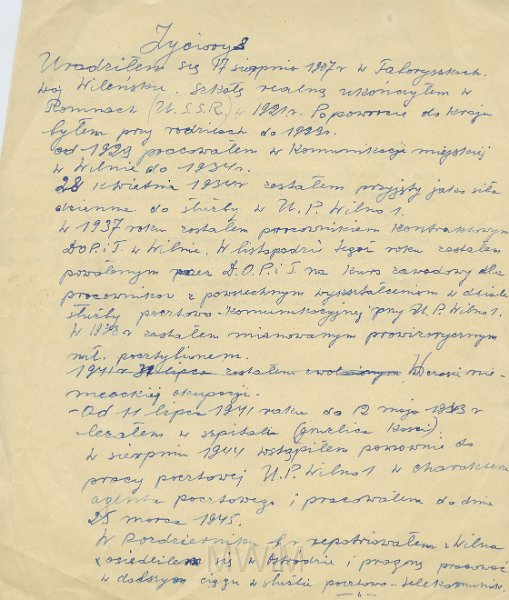 Życiorys
Urodziłem się 17 sierpnia 1907 r w Taboryszkach.
Woj Wileńskie. Szkołę realną ukończyłem w
Romnach (U.S.S.R.) w 1921 r. Po powrocie do kraju
byłem przy rodzicach do 1929 r.
od 1929 pracowałem w Komunikacji miejskiej
w Wilnie do 1934 r.
28 kwietnia 1934 r zostałem przyjęty jako siła
dzienna do służby w U.P. Wilno 1.
w 1937 roku zostałem pracownikiem kontraktowym
D.O.P.iT. w Wilnie. W listopadzie tegoż roku zostałem
powołanym przez D.O.P.iT. na kurs zawodowy dla
pracowników z powszechnym wykształceniem w dziale
służby pocztowo-komunikacyjnej przy U.P. Wilno 1.
W 1938 r zostałem mianowanym prowizorycznym
mł. pocztylionem.
1941 r lipca zostałem zwolnionym W czasie nie-
mieckiej okupacji.
- Od 11 lipca 1941 roku do 12 maja 1943 r
leżałem w szpitalu (gruźlica kości)
w sierpniu 1944 wstąpiłem ponownie do
pracy pocztowej U.P. Wilno 1 w charakterze
agenta pocztowego i pracowałem do dnia
25 marca 1945.
W październiku b.r repatriowałem z Wilna
i osiedliłem się w Ostródzie i pragnę pracować
w dalszym ciągu w służbie pocztowo-telekomunik.
MWM